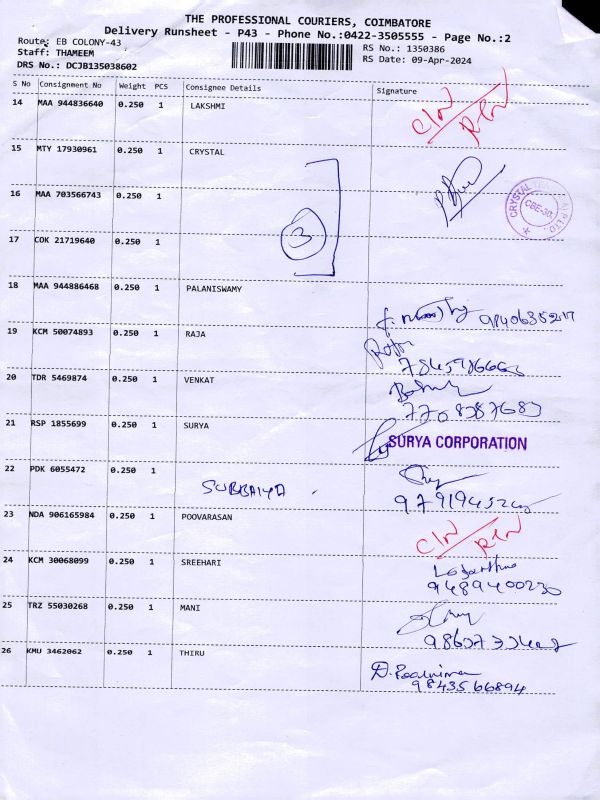 THE PROFESSIONAL COURIERS, COIMBATORE
Delivery Runsheet - P43 - Phone No.:0422-3505555 - Page No.:2
Route: EB COLONY-43 RS No.: 1350386
Staff: THAMEEM RS Date: 09-Apr-2024
DRS No.: DCJB135038602
S No Consignment No Weight PCS Consignee Details Signature
14 MAA 944836640 0.250 1 LAKSHMI
15 MTY 17930961 0.250 1 CRYSTAL
16 MAA 703566743 0.250 1
CRYSTAL
CBE-30.
3
17 COK 21719640 0.250 1
18 MAA 944886468 0.250 1 PALANISWAMY
19 KCM 50074893 0.250 1 RAJA
20 TDR 5469874 0.250 1 VENKAT
7708387683
21 RSP 1855699 0.250 1 SURYA
SURYA CORPORATION
22 PDK 6055472 0.250 1
SUBBAIYA
23 NDA 906165984 0.250 1 POOVARASAN
24 KCM 30068099 0.250 1 SREEHARI
9489400230
25 TRZ 55030268 0.250 1 MANI
26 KMU 3462062 0.250 1 THIRU
9843566894